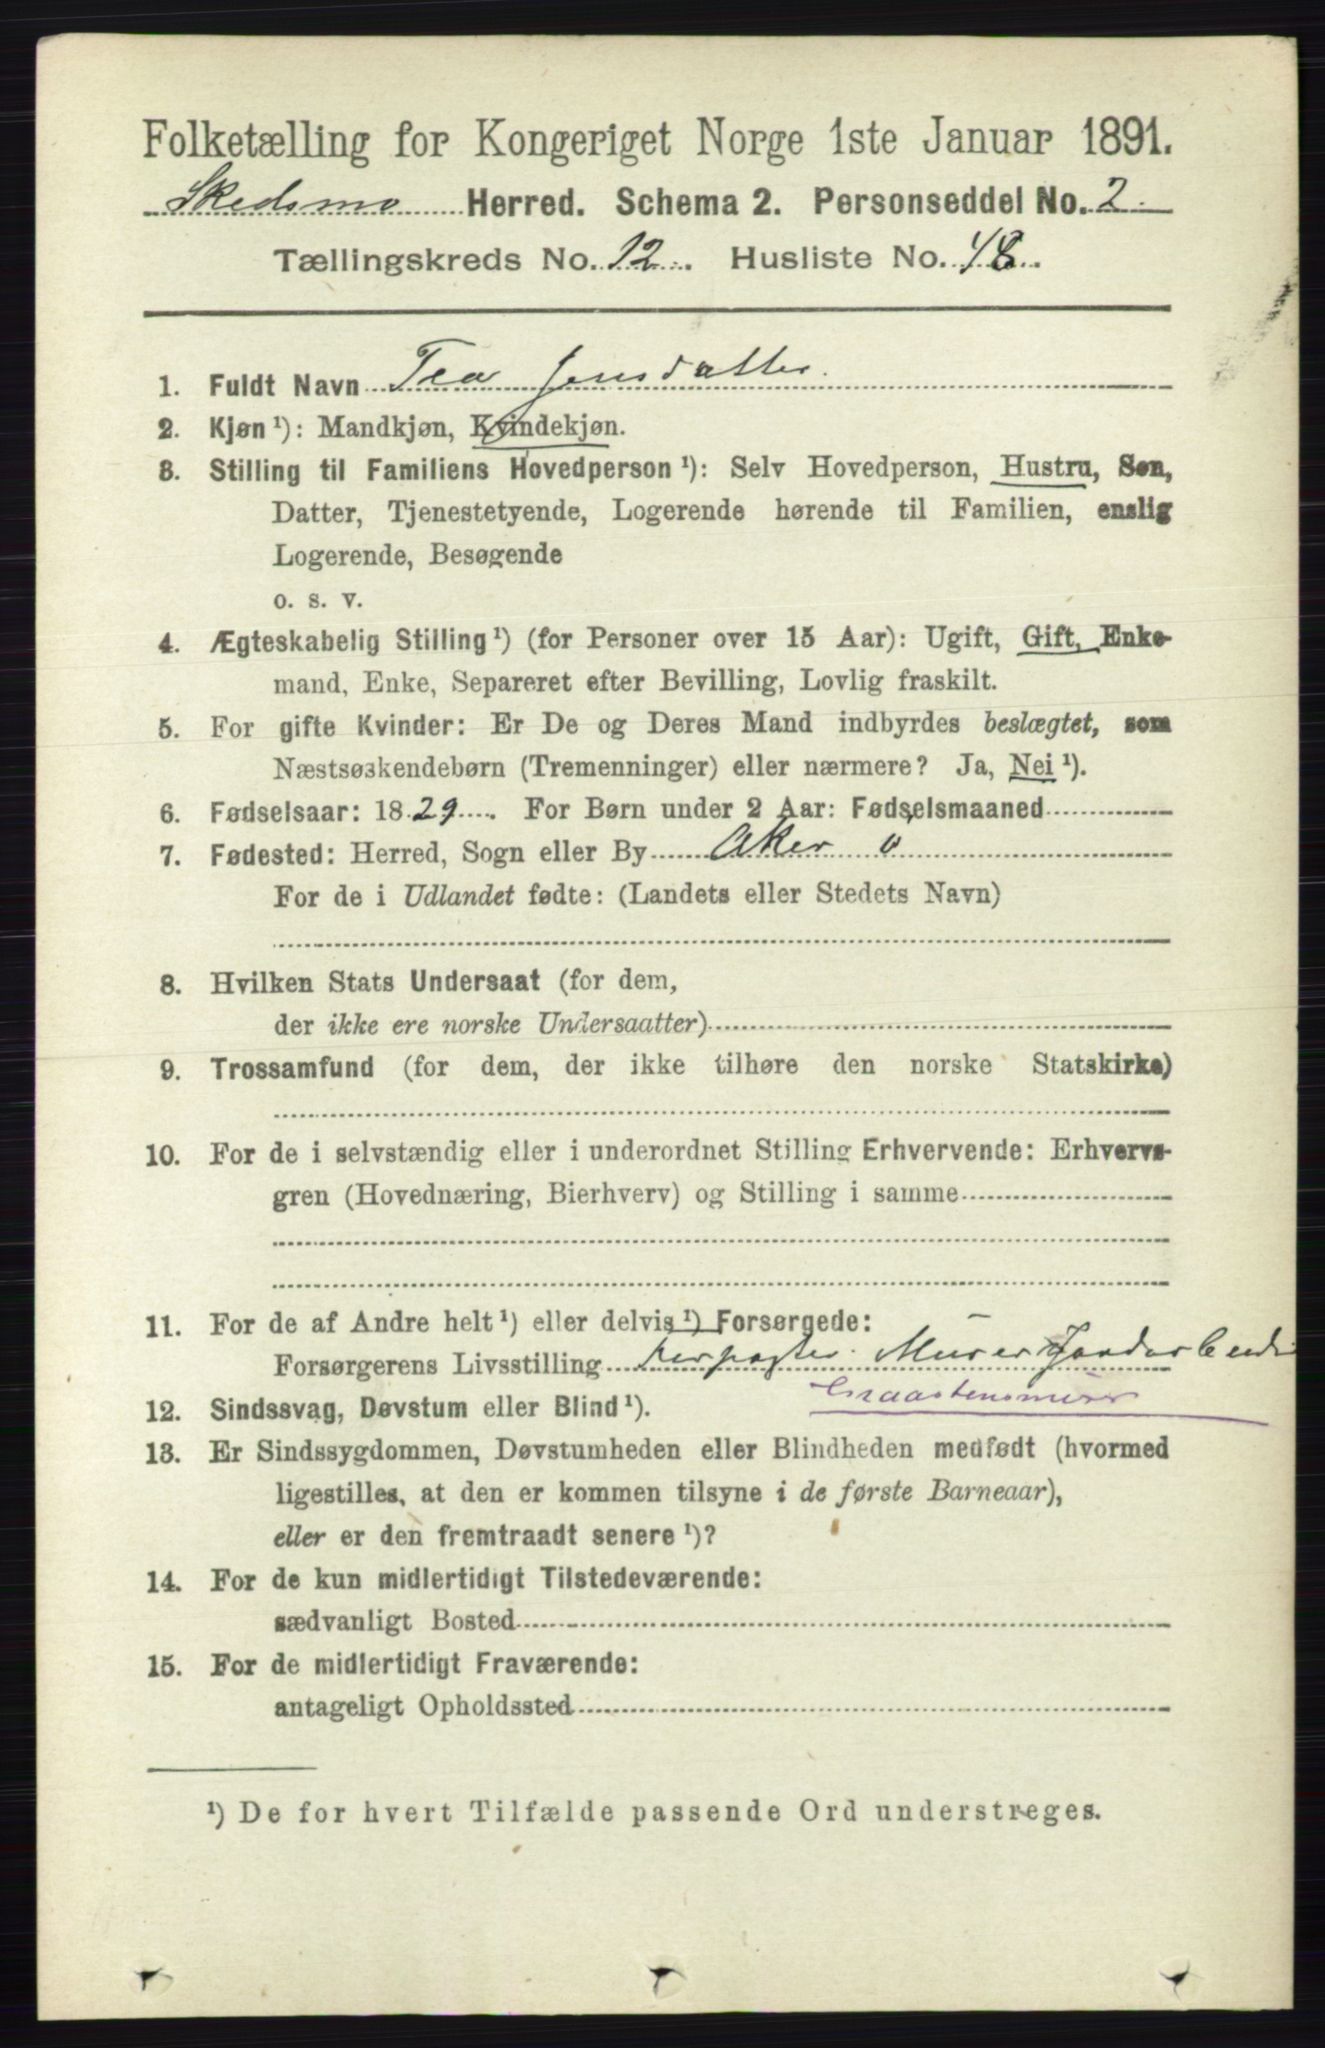 Folketælling for Kongeriget Norge 1ste Januar 1891.
Skedsmo Herred. Schema 2. Personseddel No. 2.
Tællingskreds No. 12. Husliste No. 48.
1. Fuldt Navn Tea Jensdatter.
2. Kjøn ¹): Mandkjøn, Kvindekjøn.
3. Stilling til Familiens Hovedperson ¹): Selv Hovedperson, Hustru, Søn,
Datter, Tjenestetyende, Logerende hørende til Familien, enslig
Logerende, Besøgende
o. s. v.
4. Ægteskabelig Stilling ¹) (for Personer over 15 Aar): Ugift, Gift, Enke-
mand, Enke, Separeret efter Bevilling, Lovlig fraskilt.
5. For gifte Kvinder: Er De og Deres Mand indbyrdes beslægtet, som
Næstsøskendebørn (Tremenninger) eller nærmere? Ja, Nei ¹).
6. Fødselsaar: 1829. For Børn under 2 Aar: Fødselsmaaned
7. Fødested: Herred, Sogn eller By Aker
For de i Udlandet fødte: (Landets eller Stedets Navn)
8. Hvilken Stats Undersaat (for dem,
der ikke ere norske Undersaatter)
9. Trossamfund (for dem, der ikke tilhøre den norske Statskirke)
10. For de i selvstændig eller i underordnet Stilling Erhvervende: Erhvervs-
gren (Hovednæring, Bierhverv) og Stilling i samme
11. For de af Andre helt ¹) eller delvis ¹) Forsørgede:
Forsørgerens Livsstilling Murer
Graastensmurer
12. Sindssvag, Døvstum eller Blind ¹).
13. Er Sindssygdommen, Døvstumheden eller Blindheden medfødt (hvormed
ligestilles, at den er kommen tilsyne i de første Barneaar),
eller er den fremtraadt senere ¹)?
14. For de kun midlertidigt Tilstedeværende:
sædvanligt Bosted
15. For de midlertidigt Fraværende:
antageligt Opholdssted
¹) De for hvert Tilfælde passende Ord understreges.